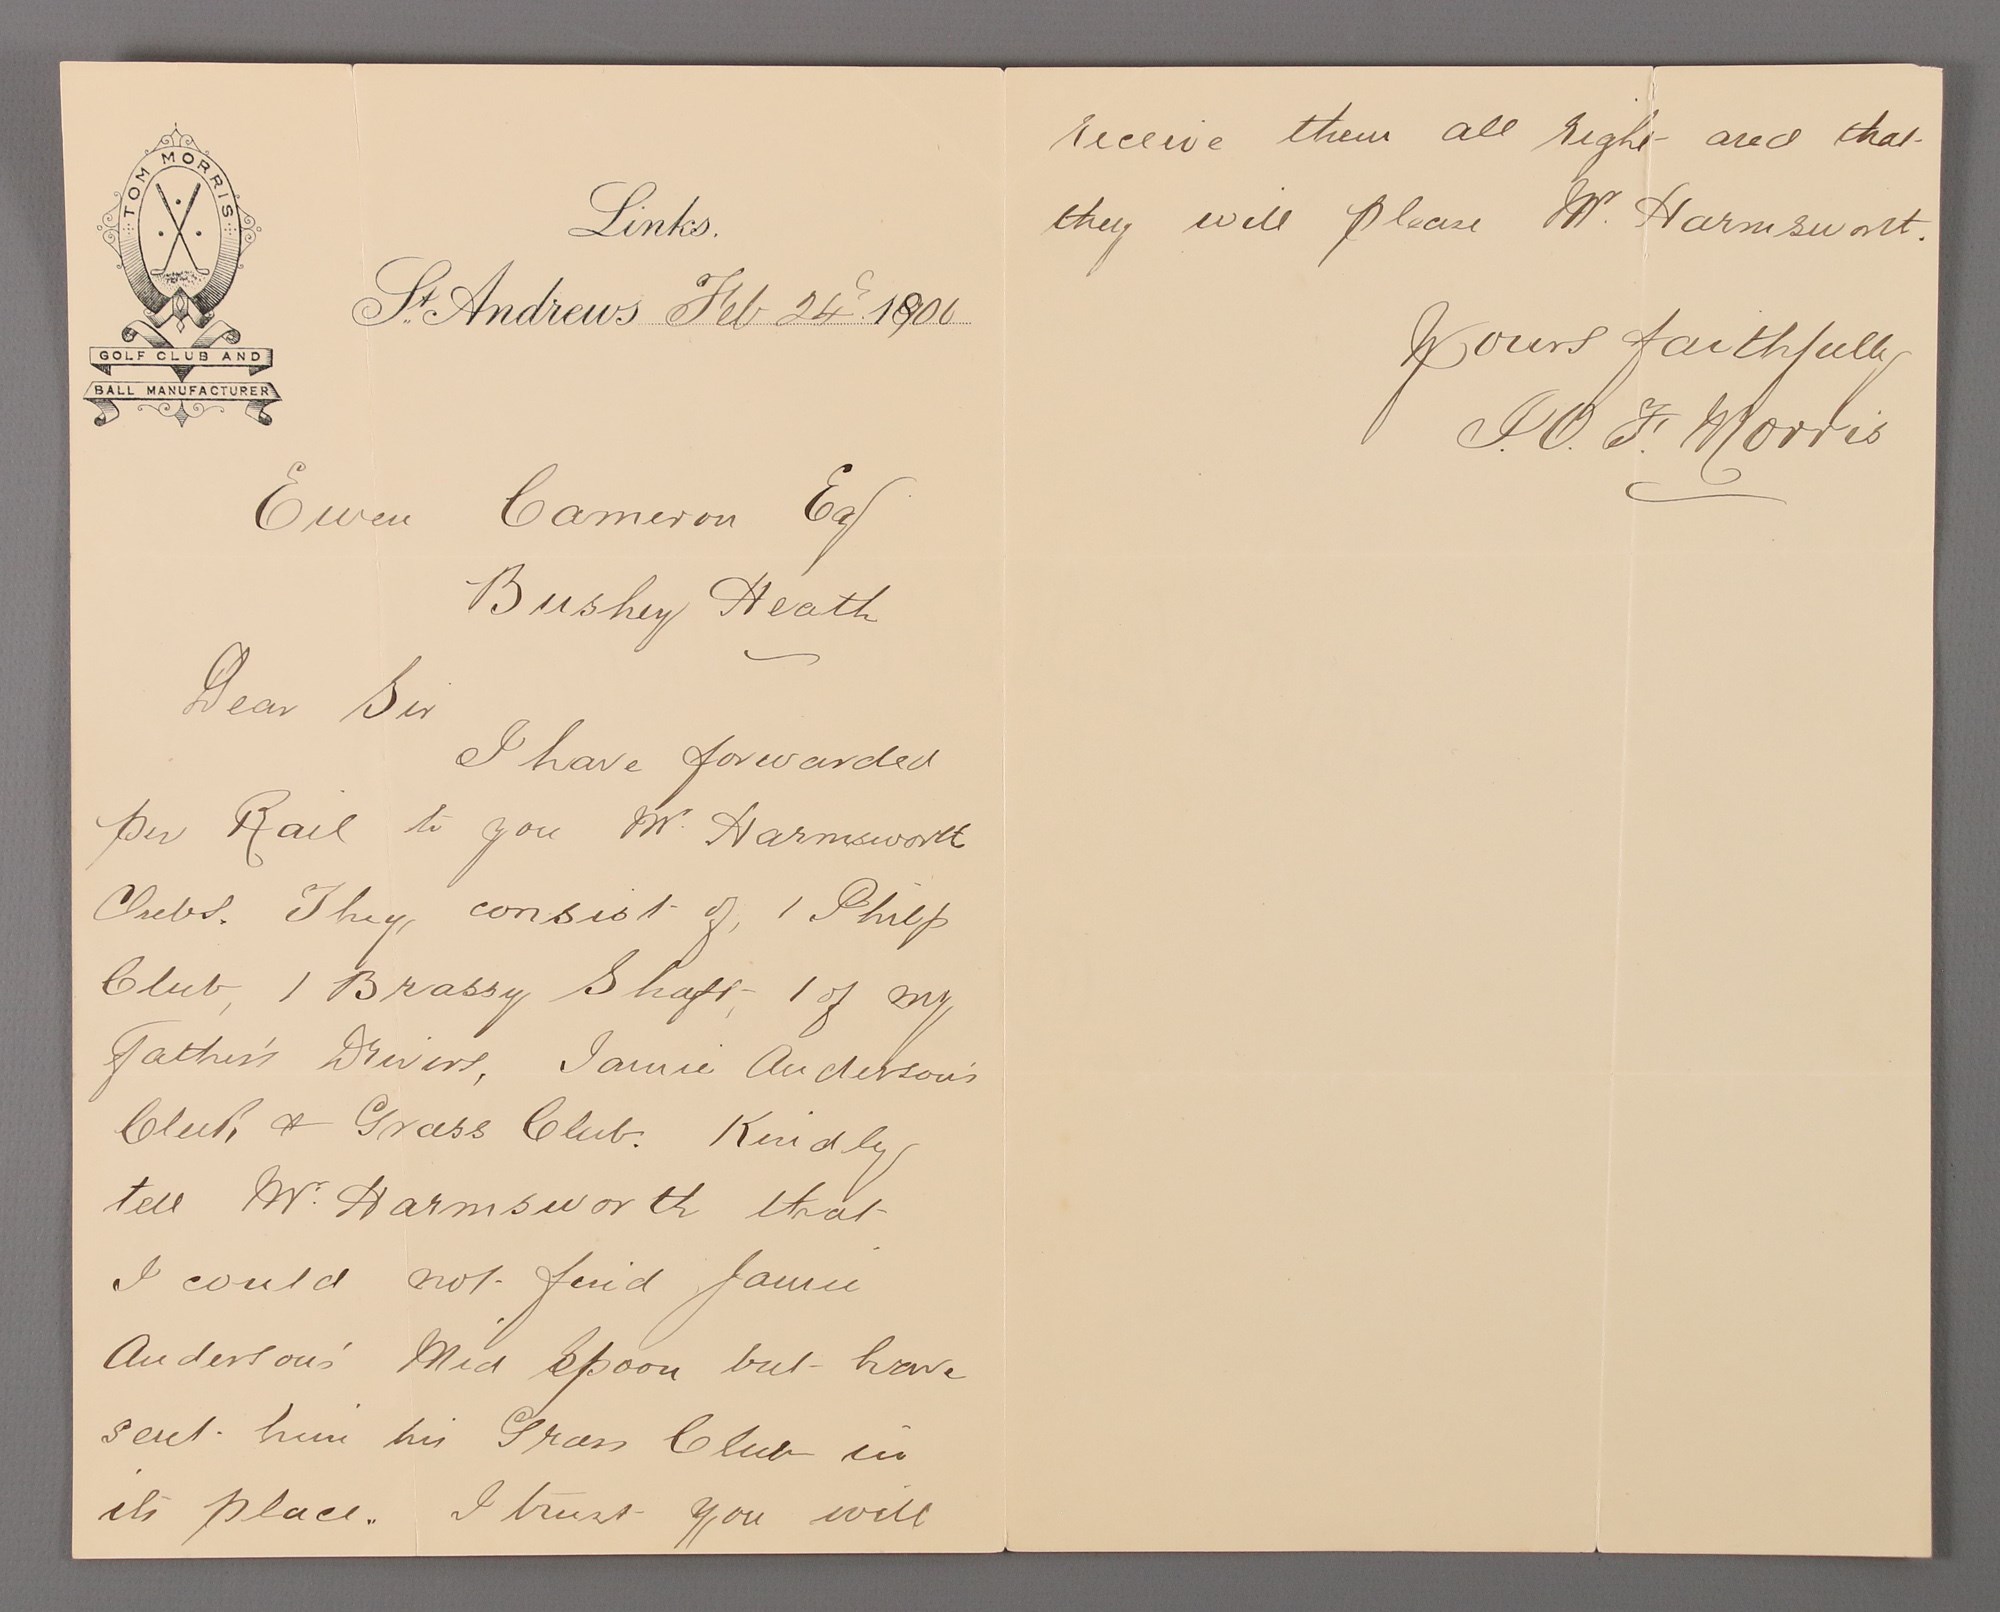 TOM MORRIS
GOLF CLUB AND
BALL MANUFACTURER
Links.
St. Andrews Feb 24th 1906
Ewen Cameron Esq
Bushey Heath
Dear Sir
I have forwarded
per Rail to you Mr. Harmsworth
Clubs. They consist of, 1 Philp
Club, 1 Brassy Shaft, 1 of my
Father's Drivers, Jamie Anderson's
Club, & Grass Club. Kindly
tell Mr. Harmsworth that
I could not find Jamie
Anderson's Mid Spoon but have
sent him his Grass Club in
its place. I trust you will
receive them all right and that
they will please Mr. Harmsworth.
Yours faithfully
J.O.F. Morris